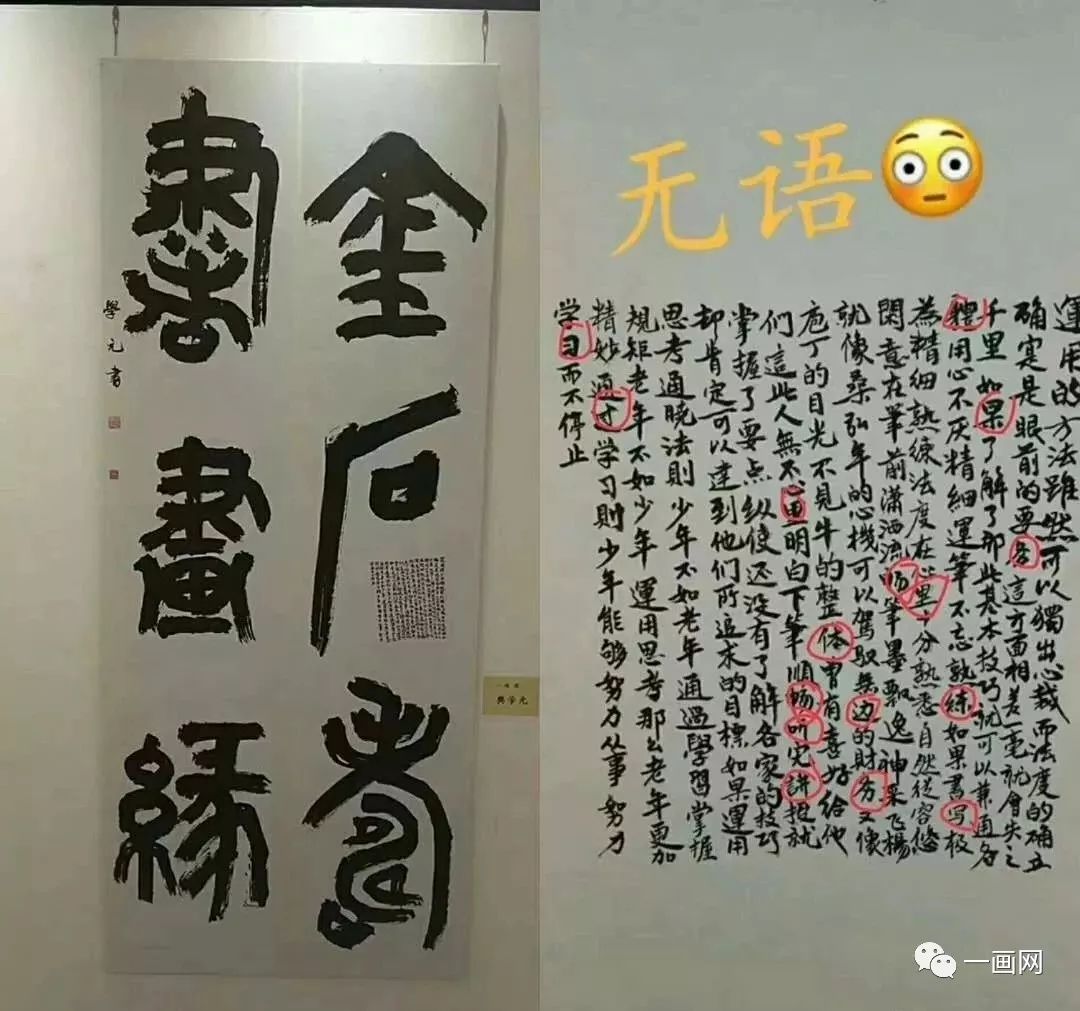 金石壽
書畫緣
學元書
樊学元
无语
運用的方法雖然可以獨出心裁而法度的确立
确実是眼前的要务這方面相差一毫就會失之
千里如果了解了那些基本技巧就可以兼通各
體用心不厌精细運筆不忘熟練如果書写极
為精細熟練法度在心里十分熟悉自然從容悠
閑意在筆前瀟洒流畅筆墨飘逸神采飞楊
就像桑弘年的心機可以驾驭無边的財务又像
庖丁的目光不見牛的整体曾有喜好給他
们這些人無不心里明白下筆順畅听完讲授就
掌握了要点纵使还没有了解各家的技巧
却肯定可以達到他们所追求的目標如果運用
思考通晓法則少年不如老年通過學習掌握
規矩老年不如少年運用思考那么老年更加
精妙通过学习則少年能够努力从事努力
学习而不停止
一画网